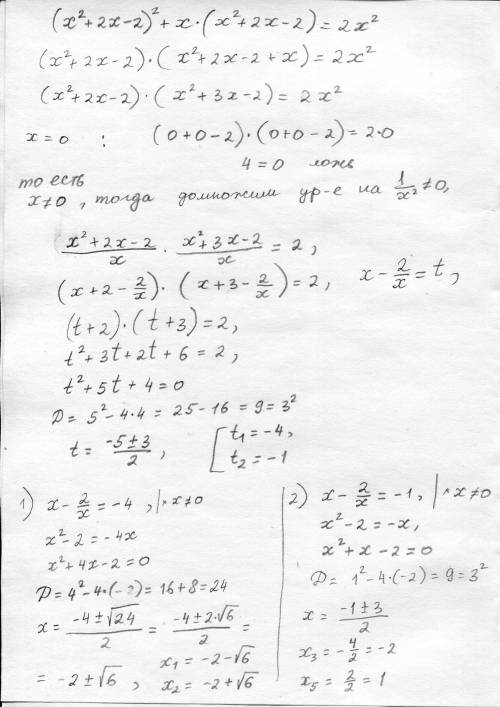 (x²+2x-2)²+x·(x²+2x-2)=2x²
(x²+2x-2)·(x²+2x-2+x)=2x²
(x²+2x-2)·(x²+3x-2)=2x²
x=0 : (0+0-2)·(0+0-2)=2·0
4=0 ложь
то есть
x≠0, тогда домножим ур-е на 1/x²≠0,
(x²+2x-2)/x · (x²+3x-2)/x = 2,
(x+2-2/x)·(x+3-2/x)=2, x-2/x=t,
(t+2)·(t+3)=2,
t²+3t+2t+6=2,
t²+5t+4=0
D=5²-4·4=25-16=9=3²
t=(-5±3)/2, [t₁=-4,
t₂=-1
1) x-2/x=-4, |·x≠0
x²-2=-4x
x²+4x-2=0
D=4²-4·(-2)=16+8=24
x=(-4±√24)/2=(-4±2·√6)/2=
=-2±√6, x₁=-2-√6
x₂=-2+√6
2) x-2/x=-1, |·x≠0
x²-2=-x,
x²+x-2=0
D=1²-4·(-2)=9=3²
x=(-1±3)/2
x₃=-4/2=-2
x₅=2/2=1